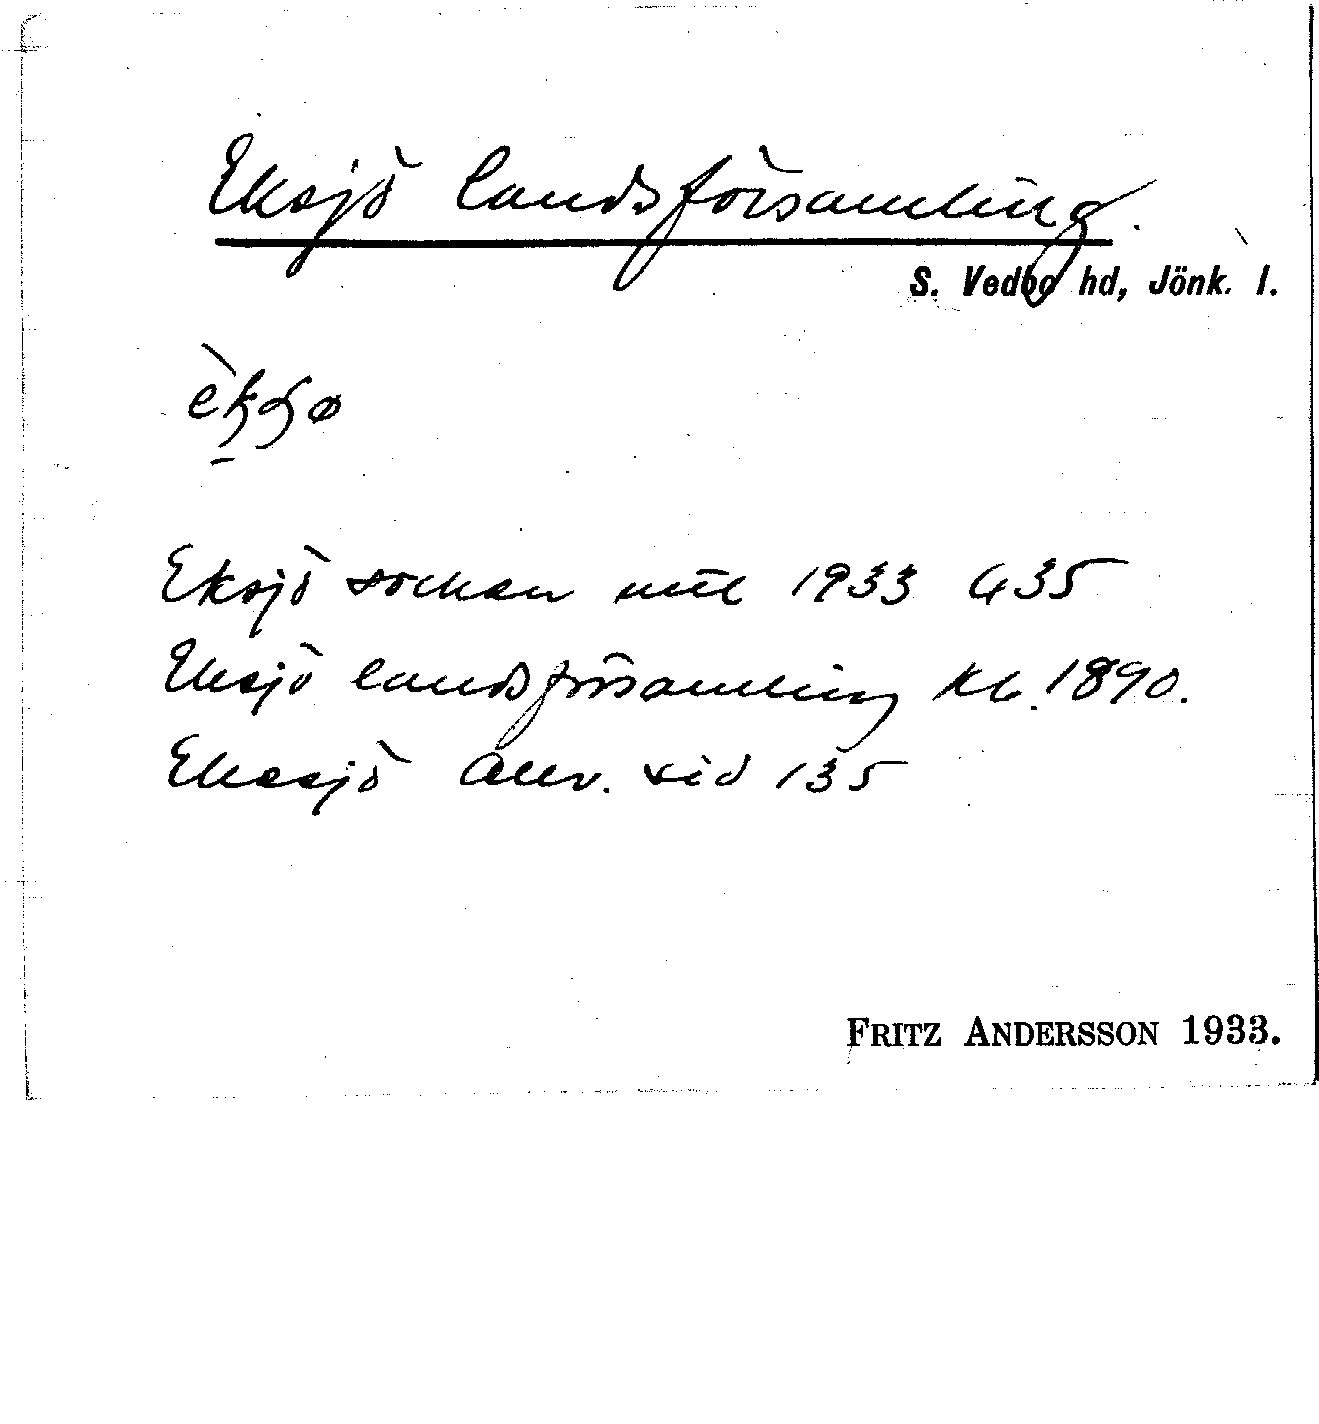 Eksjö landsförsamling.
S. Vedbo hd, Jönk. l.
Eksjö socken mtl 1933 G 35
Eksjö landsförsamling Kb. 1890.
Ekesjö Allv. sid 135
FRITZ ANDERSSON 1933.